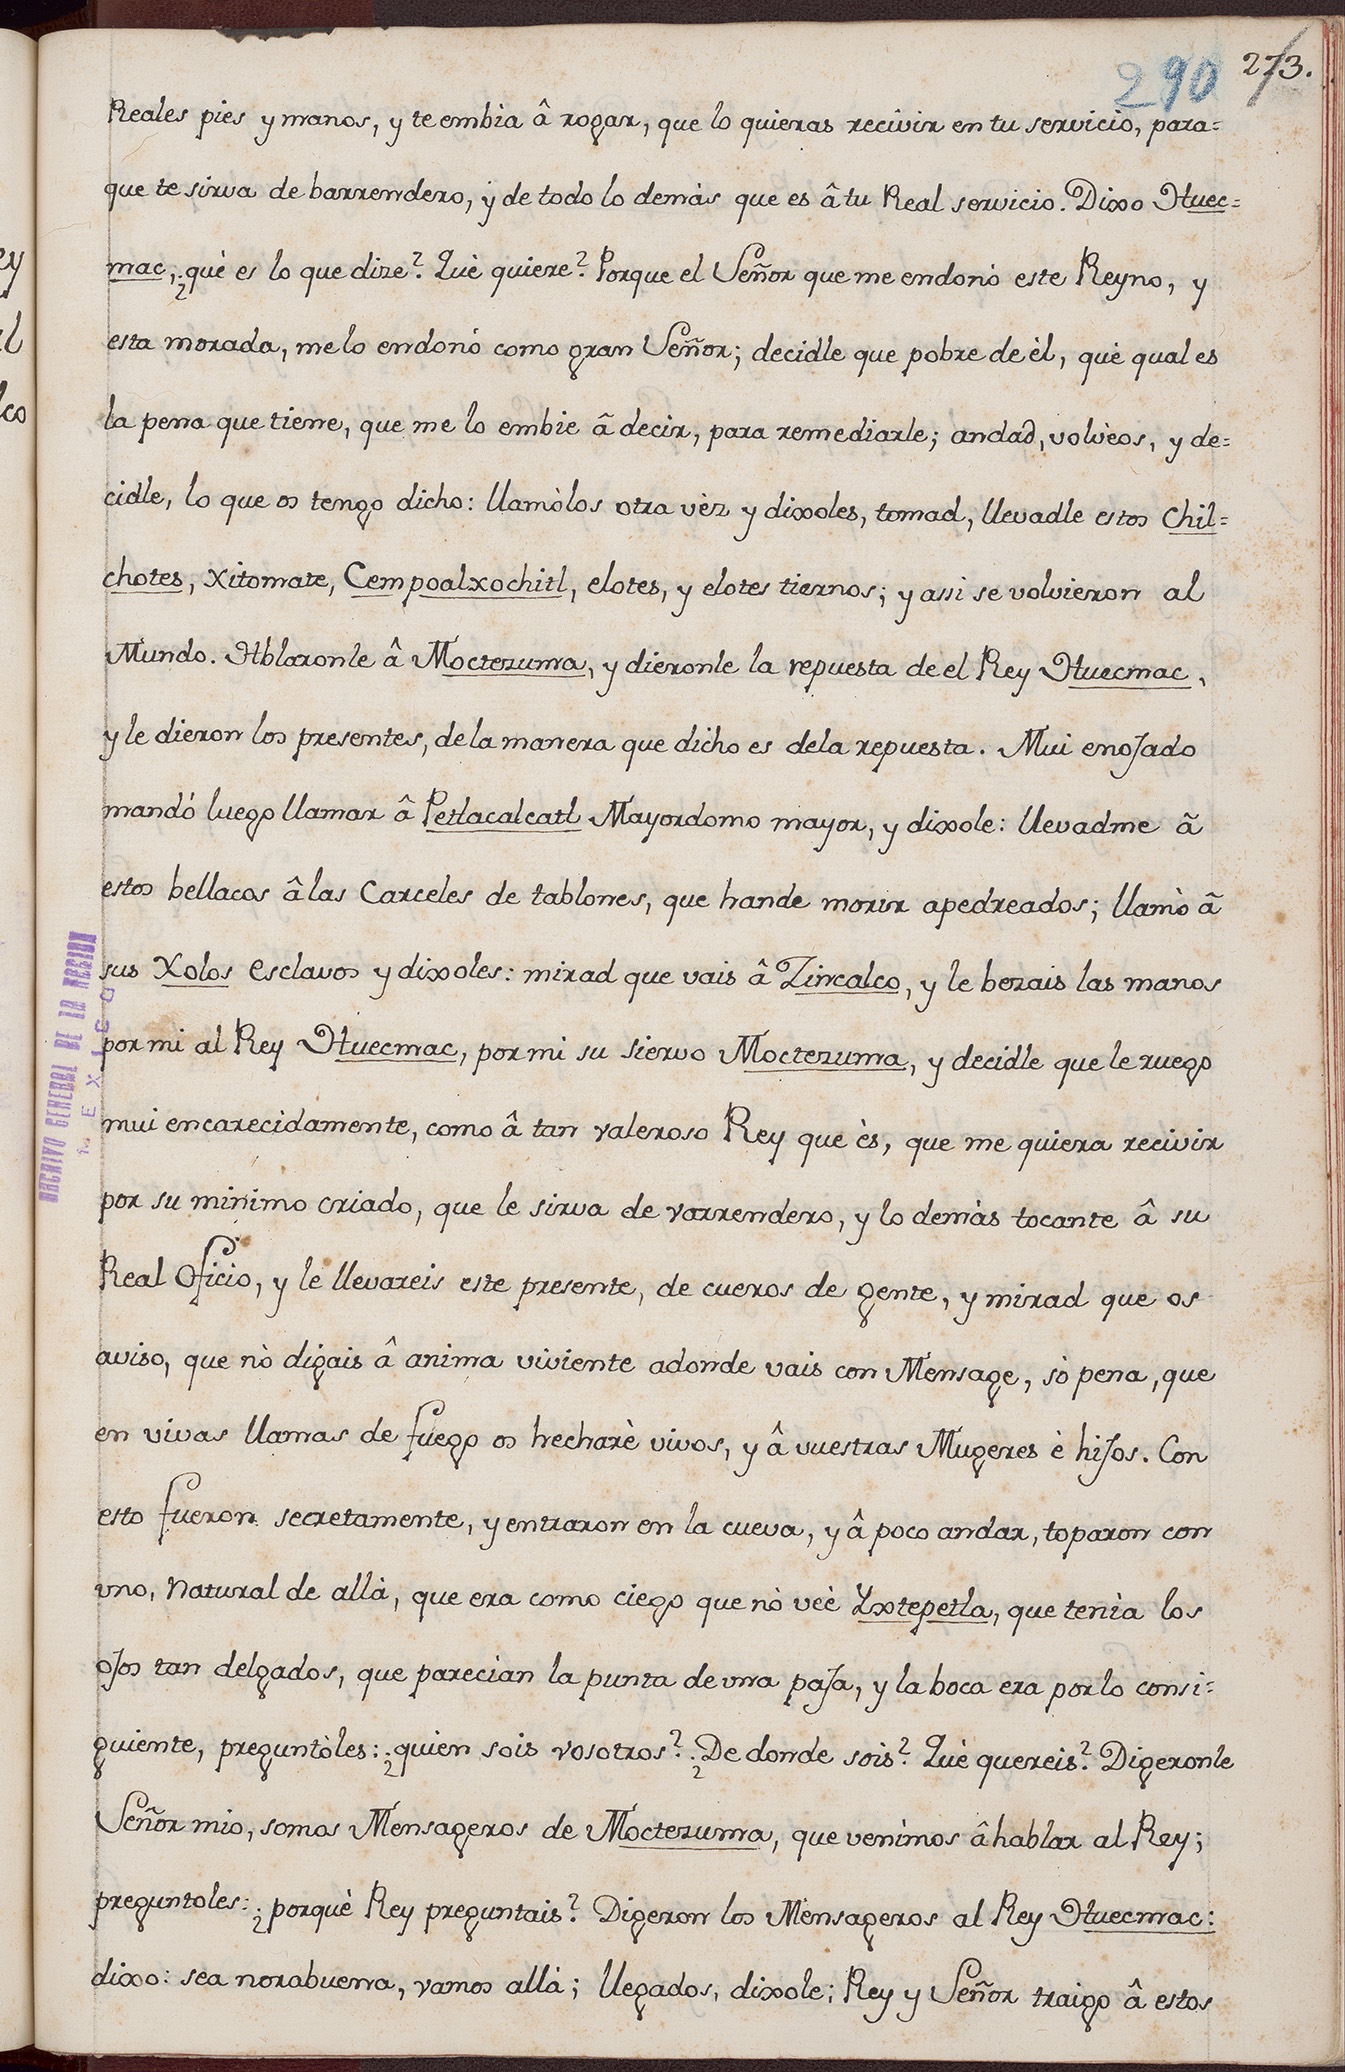 290 273.
Reales pies y manos, y te embia â rogar, que lo quieras recivir en tu servicio, para=
que te sirva de barrendero, y de todo lo demàs que es â tu Real servicio. Dixo Huec=
mac, ¿què es lo que dize? Què quiere? Porque el Señor que me endonò este Reyno, y
esta morada, me lo endonò como gran Señor; decidle que pobre de èl, què qual es
la pena que tiene, que me lo embie â decir, para remediarle; andad, volvèos, y de=
cidle, lo que os tengo dicho: llamòlos otra vèz y dixoles, tomad, llevadle estos Chil=
chotes, Xitomate, Cempoalxochitl, elotes, y elotes tiernos; y assi se volvieron al
Mundo. Hblaronle â Moctezuma, y dieronle la repuesta de el Rey Huecmac,
y le dieron los presentes, dela manera que dicho es dela repuesta. Mui enojado
mandó luego llamar â Petlacalcatl Mayordomo mayor, y dixole: llevadme â
estos bellacos â las Carceles de tablones, que hande morir apedreados; llamò â
sus Xolos esclavos y dixoles: mirad que vais â Zincalco, y le bezais las manos
por mi al Rey Huecmac, por mi su siervo Moctezuma, y decidle que le ruego
mui encarecidamente, como â tan valeroso Rey que ès, que me quiera recivir
por su minimo criado, que le sirva de varrendero, y lo demàs tocante â su
Real Oficio, y le llevareis este presente, de cueros de gente, y mirad que os
aviso, que nò digais â anima viviente adonde vais con Mensage, sò pena, que
en vivas llamas de fuego os hecharè vivos, y â vuestras Mugeres è hijos. Con
esto fueron secretamente, y entraron en la cueva, y â poco andar, toparon con
uno, Natural de allà, que era como ciego que nò veè Yxtepetla, que tenia los
ojos tan delgados, que parecian la punta de una paja, y la boca era por lo consi=
guiente, preguntòles: ¿quien sois vosotros? ¿De donde sois? Què quereis? Digeronle
Señor mio, somos Mensageros de Moctezuma, que venimos â hablar al Rey;
preguntoles: ¿porquè Rey preguntais? Digeron los Mensageros al Rey Huecmac:
dixo: sea norabuena, vamos allà; llegados, dixole; Rey y Señor traigo â estos
ARCHIVO GENERAL DE LA NACION
MEXICO
ey
al
lco